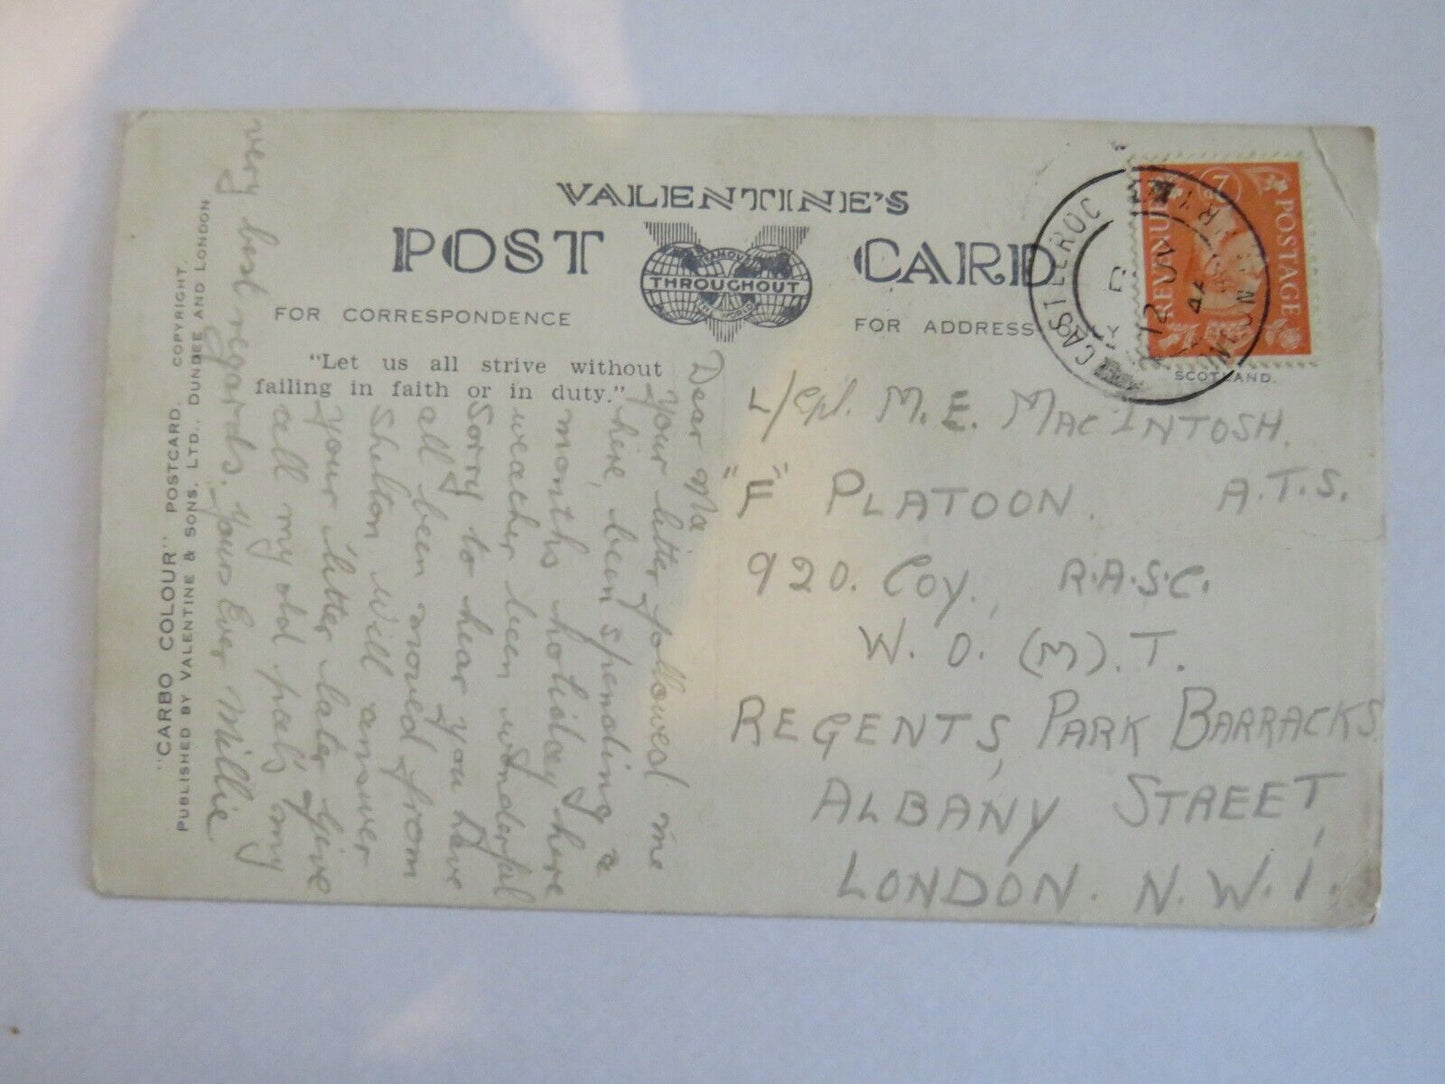 VALENTINE'S
POST CARD
FAMOUS
THROUGHOUT
THE WORLD
FOR CORRESPONDENCE
FOR ADDRESS ONLY
"Let us all strive without
failing in faith or in duty."
POSTAGE
REVENUE
12 JUN
44
SCOTLAND.
L/Cpl. M. E. MACINTOSH.
"F" PLATOON. A.T.S.
920. Coy., R.A.S.C.
W. O. (M). T.
REGENTS PARK BARRACKS
ALBANY STREET,
LONDON. N.W.1.
Dear Ma
Your letter followed me
here, been spending a
months holiday here
weather been wonderful
Sorry to hear you have
all been moved from
Shelton Will answer
your letter later Give
all my old pals my
very best regards. Yours Ever Millie
"CARBO COLOUR" POSTCARD. COPYRIGHT.
PUBLISHED BY VALENTINE & SONS, LTD., DUNDEE AND LONDON